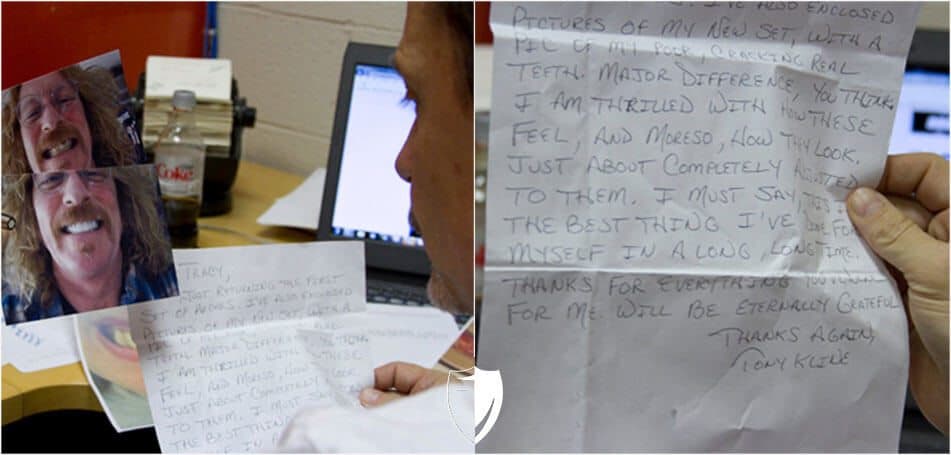 Coke
TRACY,
JUST RETURNING THE FIRST
SET OF I'VE ALSO ENCLOSED
PICTURES OF MY NEW SET, WITH A
PIC OF MY REAL
TEETH. MAJOR
I AM THRILLED WITH THESE
FEEL, AND MORESO, HOW LOOK
JUST ABOUT
TO THEM. I MUST
THE BEST THING
I'VE ALSO ENCLOSED
PICTURES OF MY NEW SET, WITH A
PIC OF MY POOR, CRACKING REAL
TEETH. MAJOR DIFFERENCE, YOU THINK,
I AM THRILLED WITH HOW THESE
FEEL, AND MORESO, HOW THEY LOOK.
JUST ABOUT COMPLETELY ADJUSTED
TO THEM. I MUST SAY, THIS IS
THE BEST THING I'VE DONE FOR
MYSELF IN A LONG, LONG TIME.
THANKS FOR EVERYTHING YOU'VE DONE
FOR ME. WILL BE ETERNALLY GRATEFUL
THANKS AGAIN,
TONY KLINE